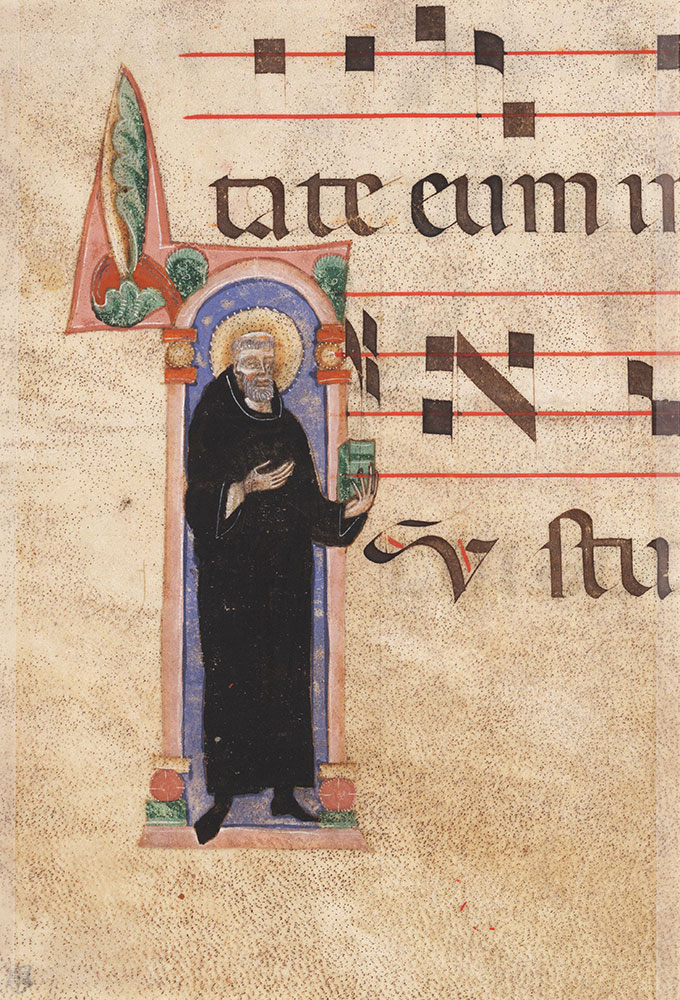 tate eum in
V stu